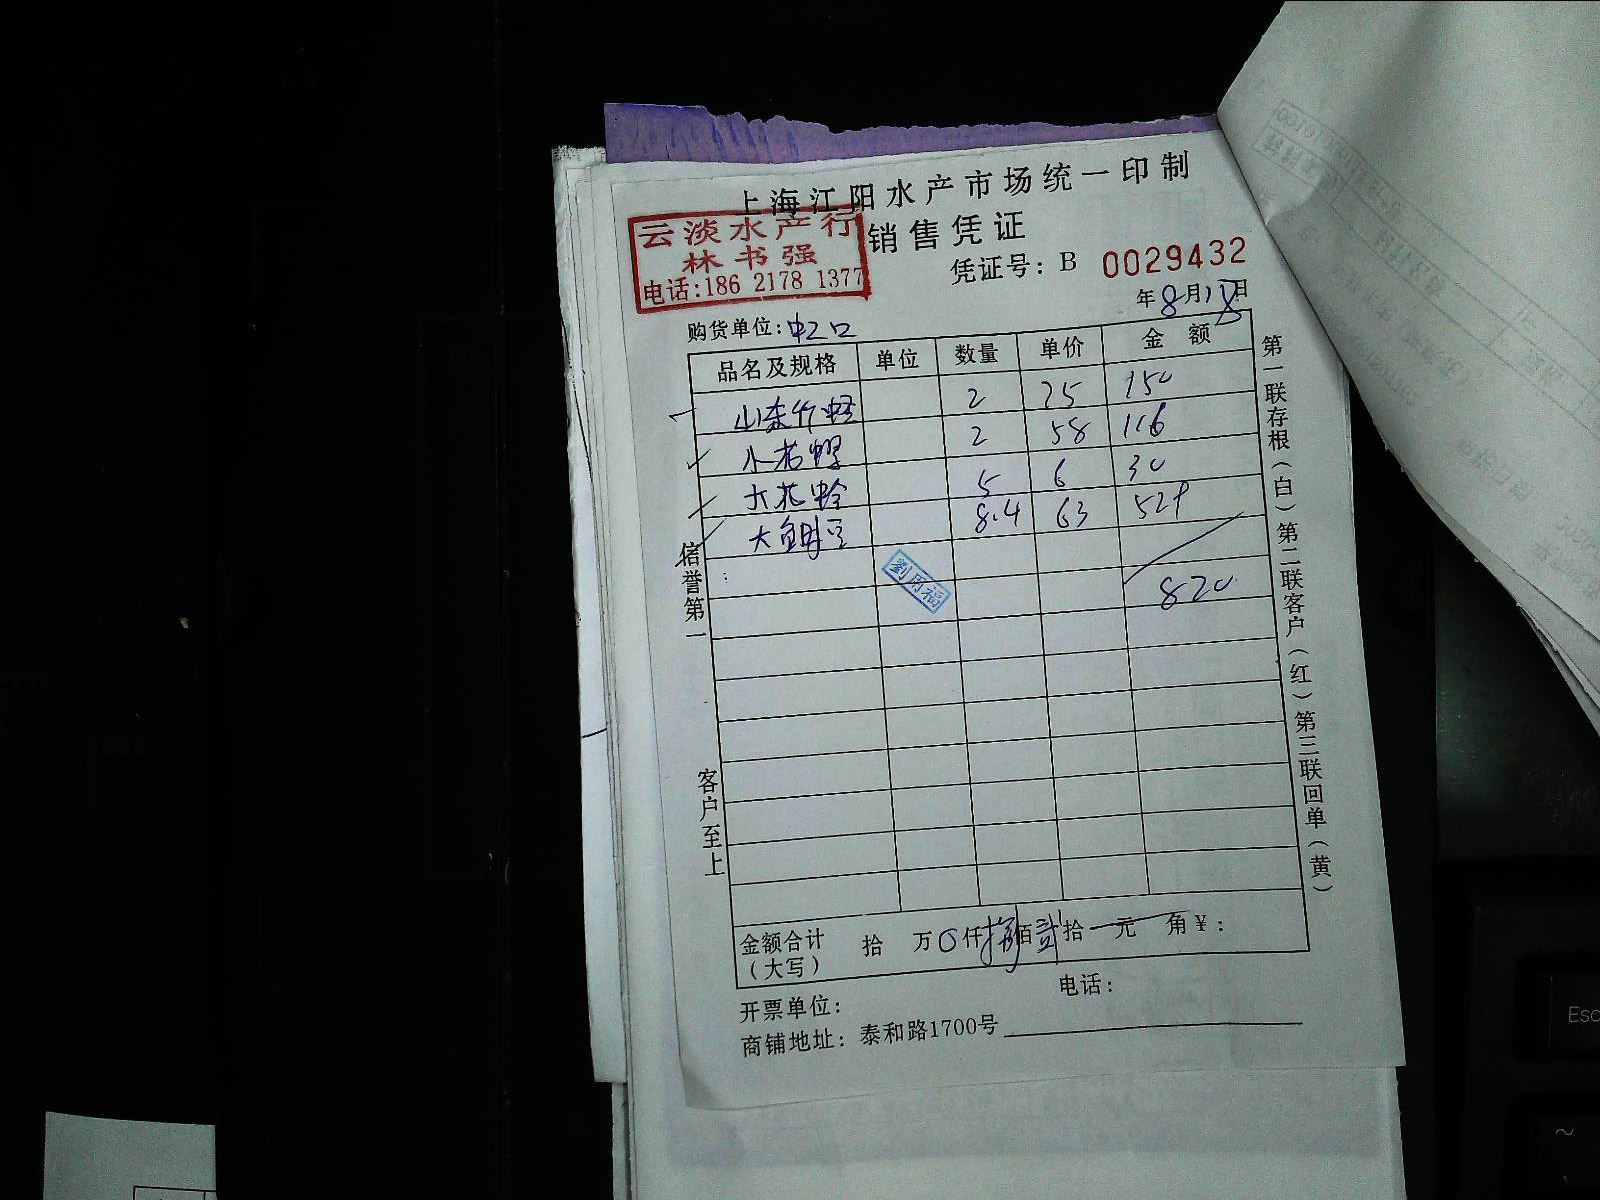 上海江阳水产市场统一印制
云淡水产行
林书强
电话:186 2178 1377
销售凭证
凭证号：B 0029432
年8月18日
购货单位:虹口
品名及规格 单位 数量 单价 金额
山东竹蛏 2 75 150
小花螺 2 58 116
大花蛤 5 6 30
大鲍 8.4 63 529
820
信誉第一
客户至上
第一联存根（白）第二联客户（红）第三联回单（黄）
金额合计（大写） 拾 万0仟捌佰贰拾 元 角￥：
开票单位： 电话：
商铺地址：泰和路1700号
Esc
~